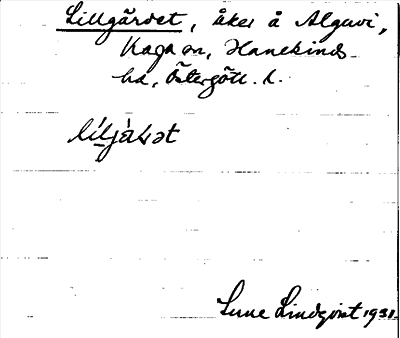 Lillgärdet, åker å Alguvi,
Kaga sn, Hanekinds
hd, Östergötl. l.
Sune Lindqvist 1931.